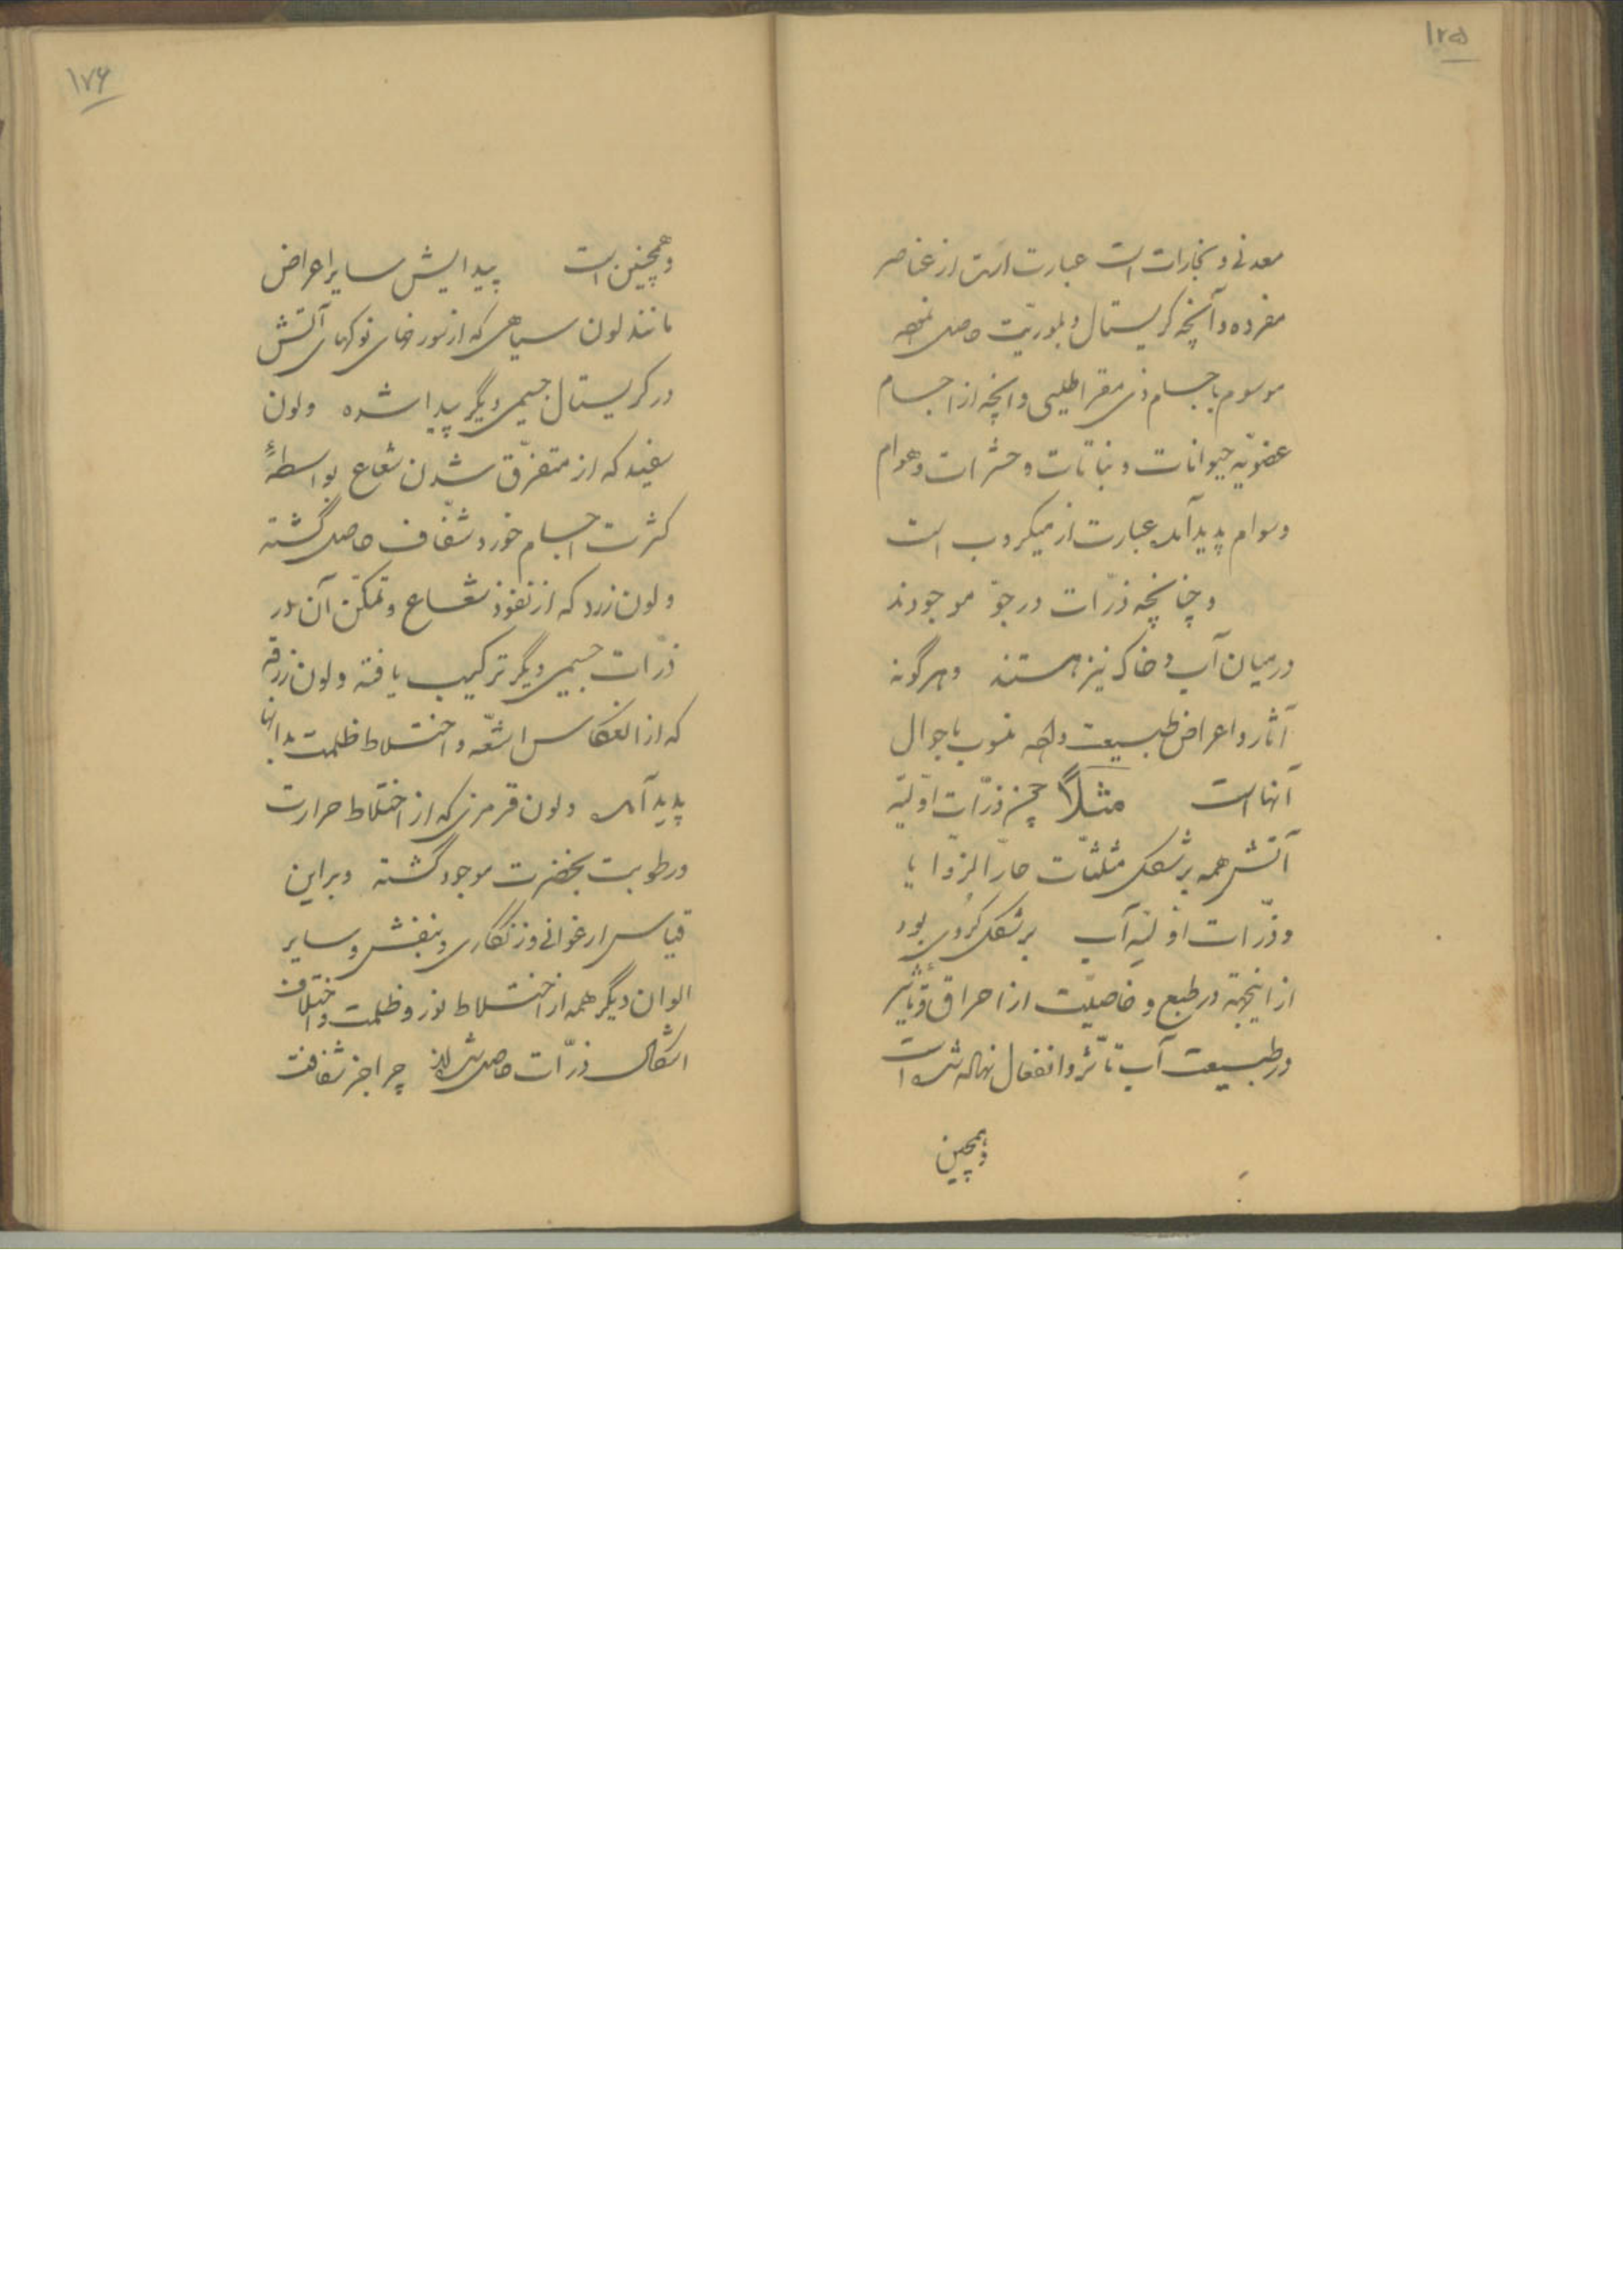 ۱۲۵
معدنی و بخارات است عبارت است از عناصر
مفرده و آنچه کریستال و بلوریّت حاصل
موسوم باجسام ذی مقراطیسی و آنچه از اجسام
عضویّه حیوانات و نباتات و حشرات و هوام
و سوام پدید آمده عبارت از میکروب است
و چنانچه ذرّات در جوّ موجودند
در میان آب و خاک نیز هستند و هر گونه
آثار و اعراض طبیعت منسوب باحوال
آنها است مثلاً ذرّات اوّلیّه
آتش همه بر شکل مثلثات حادّ الزوایا
و ذرّات اوّلیّه آب بر شکل کُروی بود
از اینجهة در طبع و خاصیّت از احراق و تأثیر
در طبیعت آب تأثر و انفعال نهاده شده است
و همچنین
۱۷۶
و همچنین است پیدایش سایر اعراض
مانند لون سیاهی که از نوکهای آتش
در کریستال جسمی دیگر پیدا شده و لون
سفید که از متفرّق شدن شعاع بواسطهٔ
کثرت اجسام خورد شفّاف حاصل گشته
و لون زرد که از نفوذ شعاع و تمکّن آن در
ذرّات جسمی دیگر ترکیب یافته و لون زرقه
که از انعکاس اشعّه و اختلاط ظلمت بدانها
پدید آمده و لون قرمزی که از اختلاط حرارت
و رطوبت بخضرت موجود گشته و بر این
قیاس ارغوانی و زنگاری و بنفش و سایر
الوان دیگر همه از اختلاط نور و ظلمت و اختلاف
اشکال ذرّات حاصل شده‌اند چه اجزء شفافت